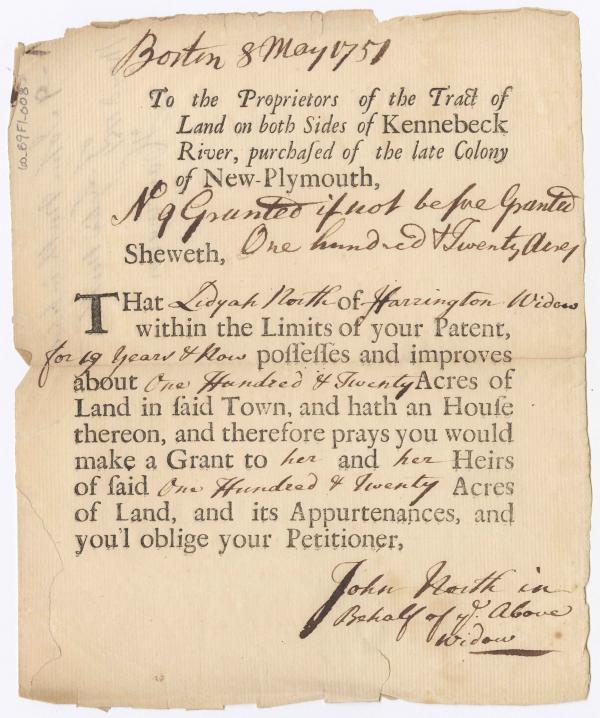 Boston 8 May 1751
To the Proprietors of the Tract of
Land on both Sides of Kennebeck
River, purchaſed of the late Colony
of New-Plymouth,
No 9 Granted if not before Granted
Sheweth, One hundred & Twenty Acres
THat Lidyah North of Harrington Widow
within the Limits of your Patent,
for 19 Years & Now poſſeſſes and improves
about One Hundred & Twenty Acres of
Land in ſaid Town, and hath an Houſe
thereon, and therefore prays you would
make a Grant to her and her Heirs
of ſaid One Hundred & Twenty Acres
of Land, and its Appurtenances, and
you'l oblige your Petitioner,
John North in
Behalf of ye. Above
Widow